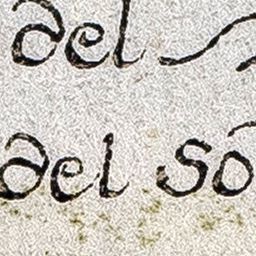 del
del so